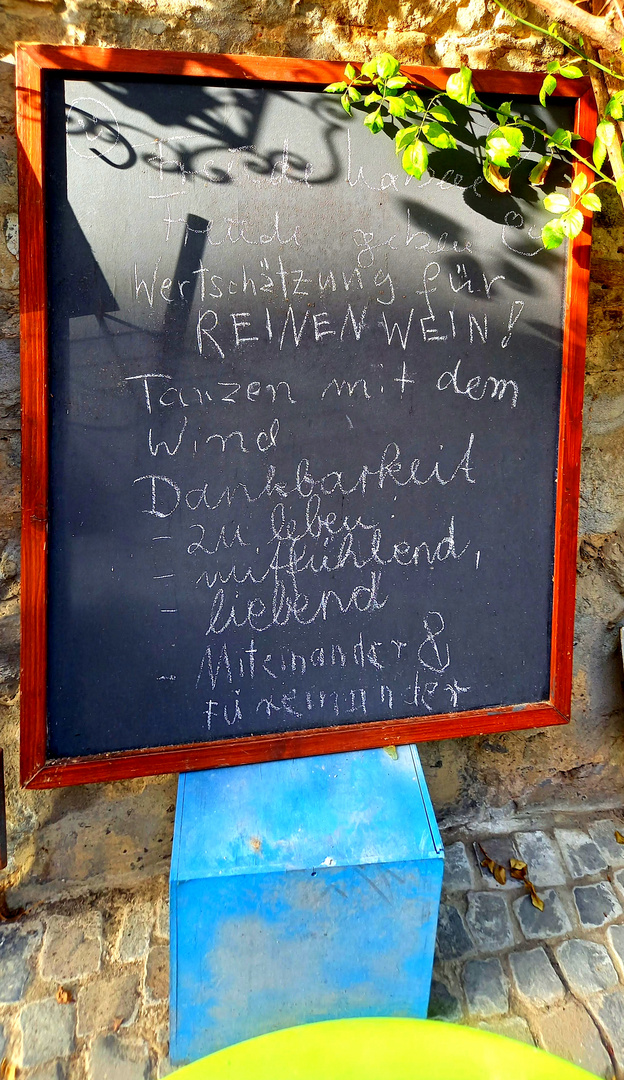 Freude haben
Freude geben
Wertschätzung für
REINEN WEIN!
Tanzen mit dem
Wind
Dankbarkeit
- zu leben
- mitfühlend,
- liebend
- Miteinander &
füreinander